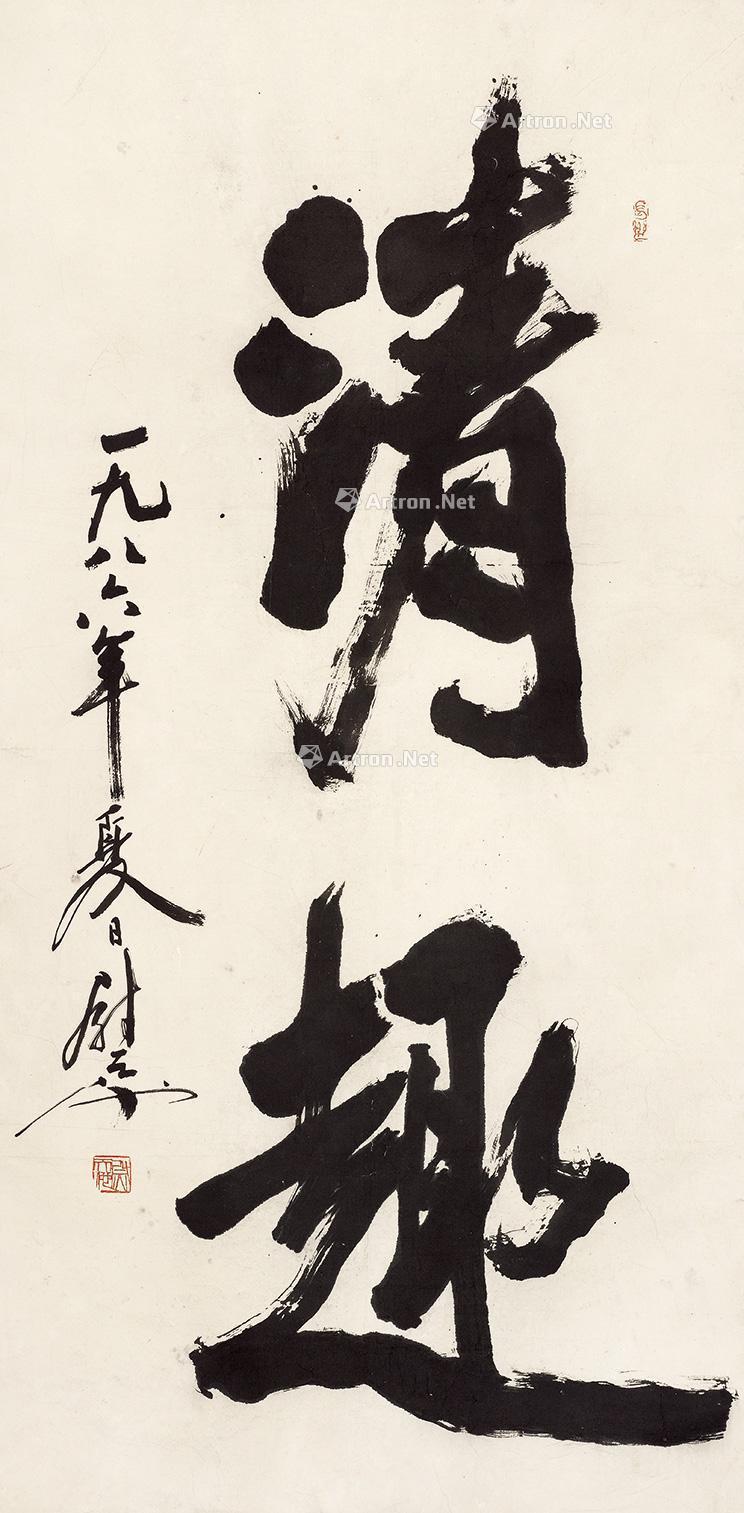 清趣
一九八六年夏日尉天池
Artron.Net
Artron.Net
Artron.Net